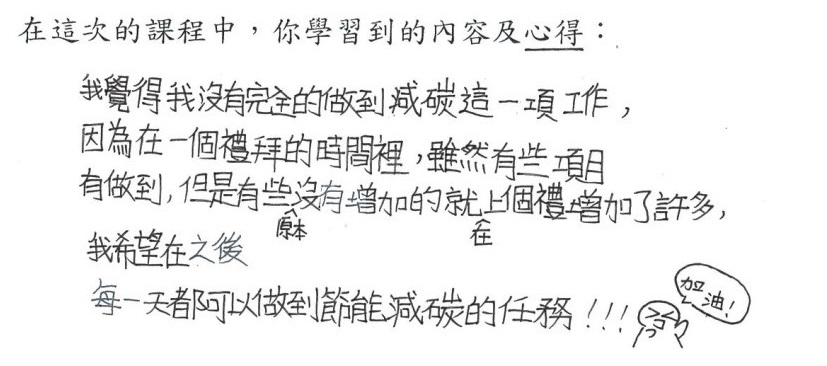 在這次的課程中，你學習到的內容及心得：
我覺得我沒有完全的做到減碳這一項工作，
因為在一個禮拜的時間裡，雖然有些項目
有做到，但是有些原本沒有增加的就在上個禮增加了許多，
我希望在之後
每一天都可以做到節能減碳的任務！！！
加油！